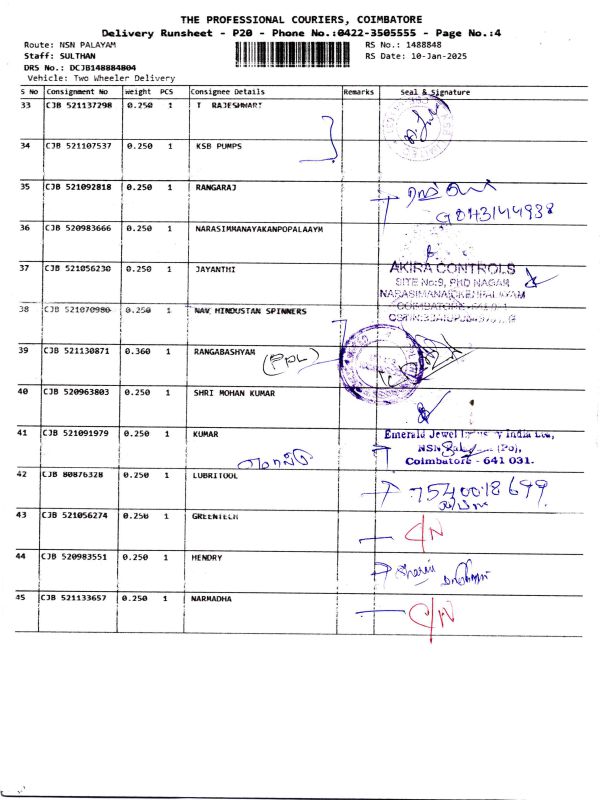 THE PROFESSIONAL COURIERS, COIMBATORE
Delivery Runsheet - P20 - Phone No.:0422-3505555 - Page No.:4
Route: NSN PALAYAM RS No.: 1488848
Staff: SULTHAN RS Date: 10-Jan-2025
DRS No.: DCJB148884804
Vehicle: Two Wheeler Delivery
S No Consignment No Weight PCS Consignee Details Remarks Seal & Signature
33 CJB 521137298 0.250 1 T RAJESHWARI
34 CJB 521107537 0.250 1 KSB PUMPS
35 CJB 521092818 0.250 1 RANGARAJ
9043144938
36 CJB 520983666 0.250 1 NARASIMMANAYAKANPOPALAAYM
37 CJB 521056230 0.250 1 JAYANTHI AKIRA CONTROLS
SITE No:9, PKD NAGAR
38 CJB 521070980 0.250 1 NAV HINDUSTAN SPINNERS
COIMBATORE
39 CJB 521130871 0.360 1 RANGABASHYAM
(PPL)
40 CJB 520963803 0.250 1 SHRI MOHAN KUMAR
41 CJB 521091979 0.250 1 KUMAR Emerald Jewel India Ltd,
NSN (Po),
Coimbatore - 641 031.
42 CJB 80876328 0.250 1 LUBRITOOL 7540018699
43 CJB 521056274 0.250 1 GREENTECH C/N
44 CJB 520983551 0.250 1 HENDRY
45 CJB 521133657 0.250 1 NARMADHA C/N